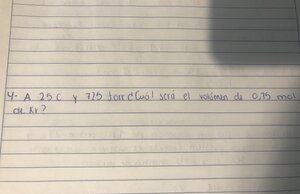 4- A 25 C y 725 torr ¿Cuál será el volúmen de 0,75 mol
de Kr?